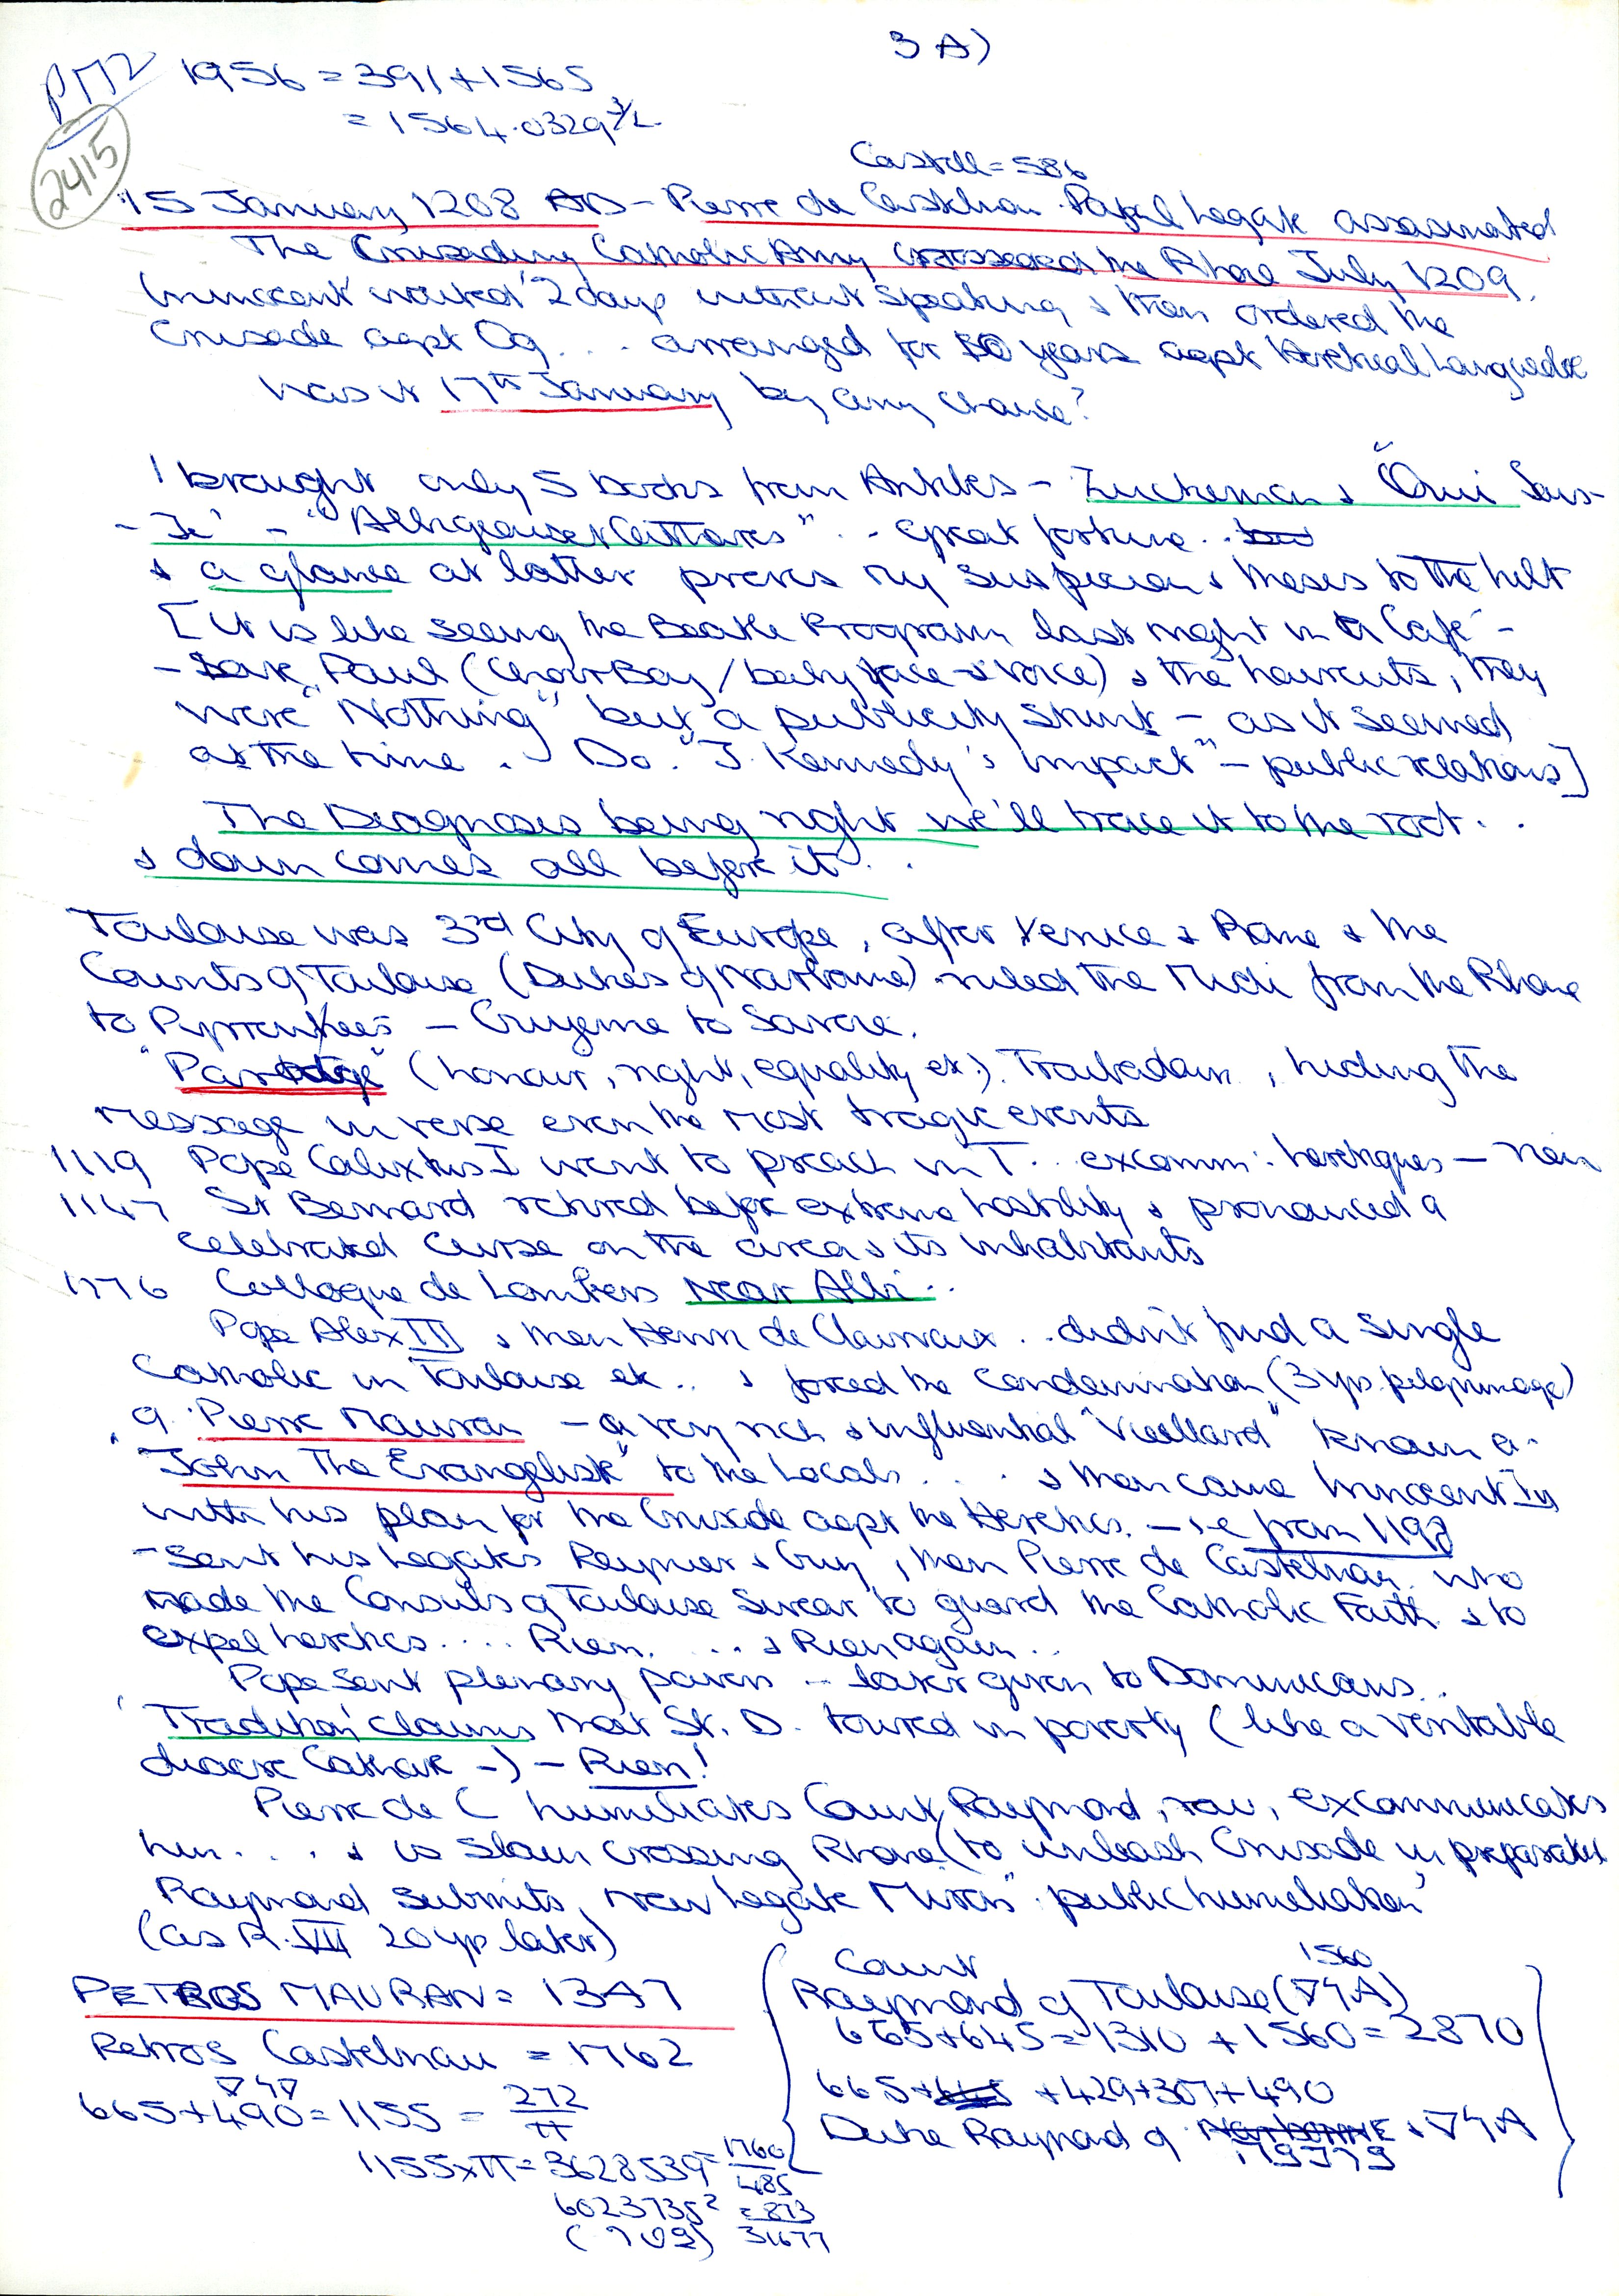 3 A)
PM2
1956 = 391 + 1565
= 1564.0329 3/2
2415
Castell = 586
15 January 1208 AD - Pierre de Castelnau Papal Legate assassinated
The Crusading Catholic Army crossed the Rhone July 1209.
Innocent waited 2 days without speaking & then ordered the
Crusade agst Oc ... arranged for 50 years agst Heretical Languedoc
Was it 17th January by any chance?
I brought only 5 books from Antibes - Zuckerman & "Qui Suis-
- Je" - "Albigeois et Cathares" .. Great fortune ..
& a glance at latter proves my suspicion & theses to the hilt
[It is like seeing the Beatle Program last night in a Café -
- Save Paul (Choir Boy / baby face & voice) & the haircuts, they
were "Nothing" but a publicity stunt - as it seemed
at the time. Do. "J. Kennedy's impact" - public relations]
The Diagnosis being right we'll trace it to the root ..
& down comes all before it ..
Toulouse was 3rd City of Europe, after Venice & Rome & the
Counts of Toulouse (Dukes of Narbonne) ruled the Midi from the Rhone
to Pyrenees - Guyenne to Savoie.
"Paratge" (honour, right, equality etc). Troubadours, hiding the
message in verse even the most tragic events
1119 Pope Calixtus I went to preach in T .. excomm: heretiques -
1147 St Bernard retired before extreme hostility & pronounced a
celebrated curse on the area & its inhabitants
1176 Colloque de Lombers near Albi ..
Pope Alex III & then Henri de Clairvaux .. didn't find a single
Catholic in Toulouse etc .. & forced the condemnation (3 yrs. pilgrimage)
of Pierre Mauran - a very rich & influential "Vieillard" known as
"John The Evangelist" to the Locals ... & then came Innocent III
with his plan for the Crusade agst the Heretics. - i.e from 1198
- Sent his Legates Reynier & Guy, then Pierre de Castelnau who
made the Consuls of Toulouse swear to guard the Catholic Faith & to
expel heretics .... Rien. ... & Rien again ..
Pope sent plenary powers .. later given to Dominicans ..
'Tradition' claims that St. D. toured in poverty (like a veritable
Cathare -) - Rien!
Pierre de C humiliates Count Raymond, now, excommunicates
him ... & is slain crossing Rhone (to unleash Crusade in preparation
Raymond submits, new Legate Milon "public humiliation"
(as R. VII 20 yrs later)
PETROS MAURAN = 1347
Petros Castelnau = 1762
▽4▽
665 + 490 = 1155 = 272/π
1155 x π = 3628539 = 1760/485
6023735² = 873
31677
Count
Raymond of Toulouse (▽4A)
1560
665 + 645 = 1310 + 1560 = 2870
665 + 429 + 307 + 490
Duke Raymond of NARBONNE & ▽4A